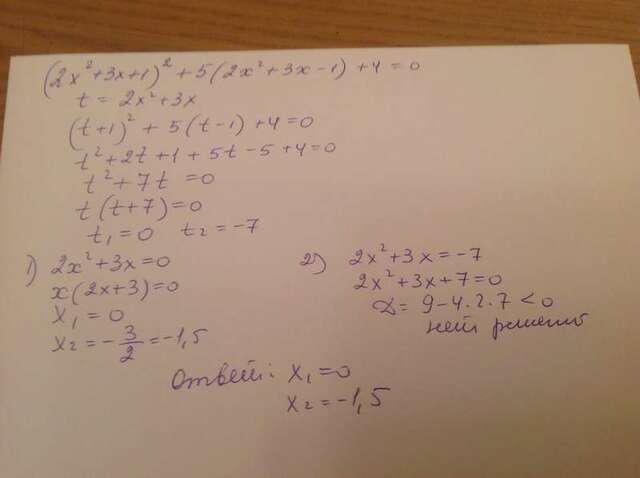 (2x²+3x+1)²+5(2x²+3x-1)+4=0
t=2x²+3x
(t+1)²+5(t-1)+4=0
t²+2t+1+5t-5+4=0
t²+7t=0
t(t+7)=0
t₁=0 t₂=-7
1) 2x²+3x=0
x(2x+3)=0
x₁=0
x₂=-3/2=-1,5
2) 2x²+3x=-7
2x²+3x+7=0
D=9-4·2·7<0
нет решений
Ответ: x₁=0
x₂=-1,5